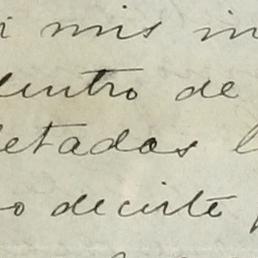 mis
dentro de
etadas
decirte